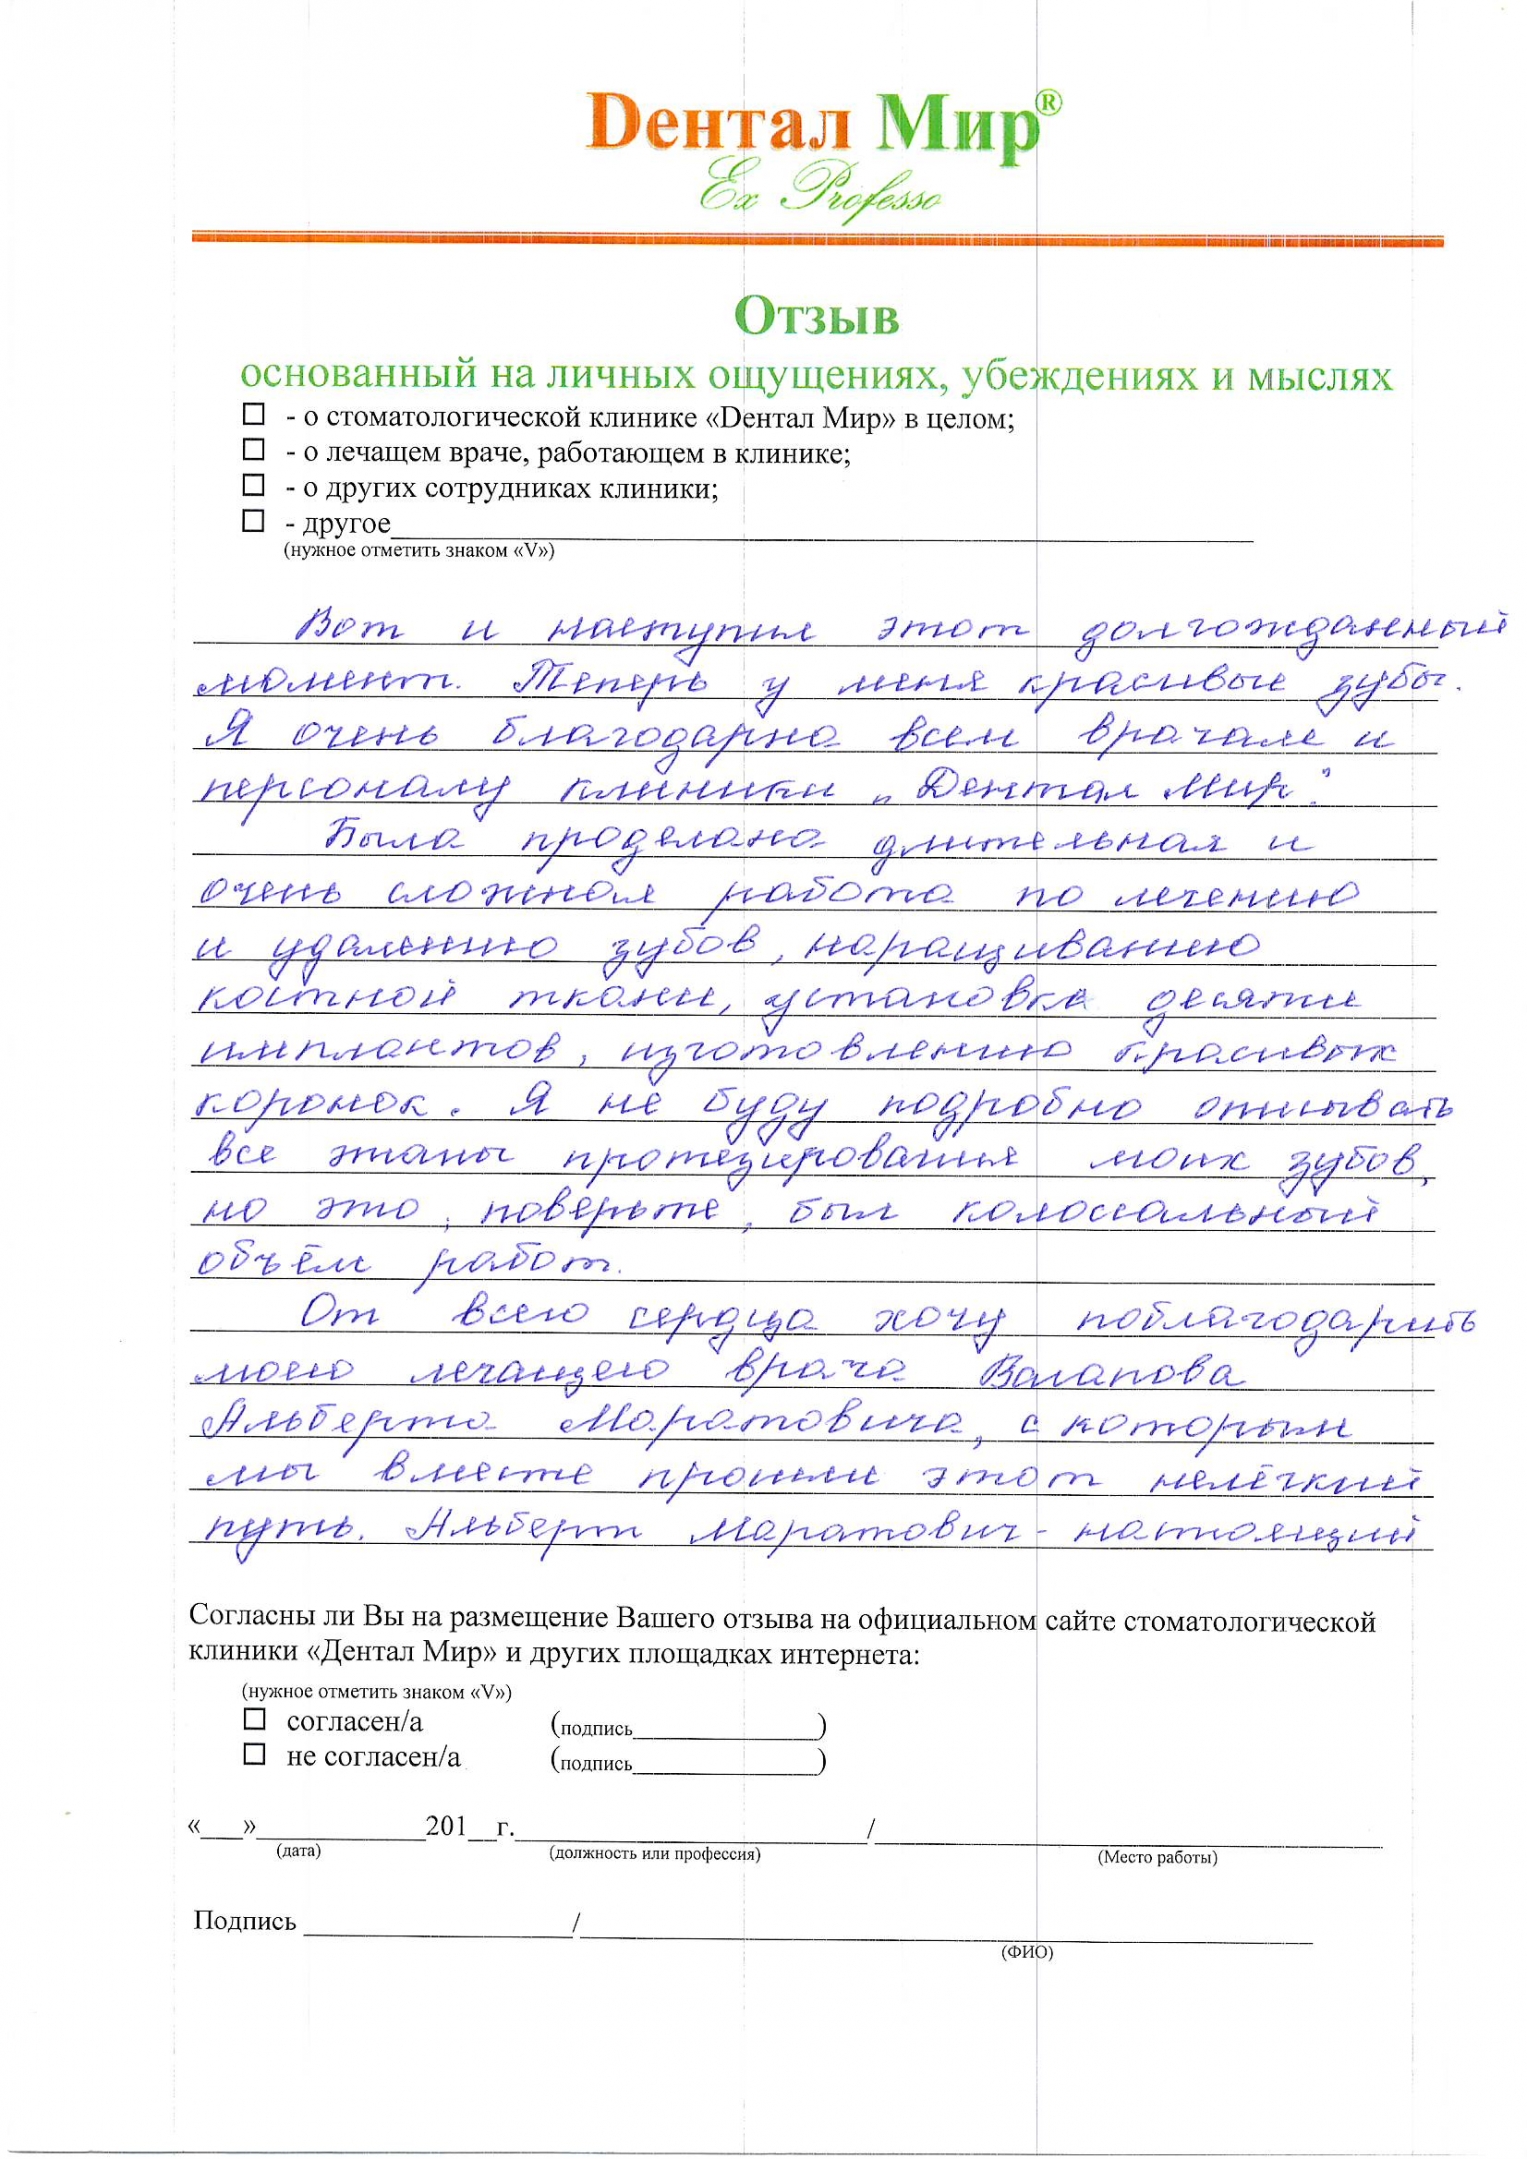 Dентал Мир®
Ex Professo
Отзыв
основанный на личных ощущениях, убеждениях и мыслях
☐ - о стоматологической клинике «Dентал Мир» в целом;
☐ - о лечащем враче, работающем в клинике;
☐ - о других сотрудниках клиники;
☐ - другое
(нужное отметить знаком «V»)
Вот и наступил этот долгожданный
момент. Теперь у меня красивые зубы.
Я очень благодарна всем врачам и
персоналу клиники „Дентал Мир".
Была проделана длительная и
очень сложная работа по лечению
и удалению зубов, наращиванию
костной ткани, установка десяти
имплантов, изготовлению красивых
коронок. Я не буду подробно описывать
все этапы протезирования моих зубов,
но это, поверьте, был колоссальный
объём работ.
От всего сердца хочу поблагодарить
моего лечащего врача Валапова
Альберта Маратовича, с которым
мы вместе прошли этот нелёгкий
путь. Альберт Маратович - настоящий
Согласны ли Вы на размещение Вашего отзыва на официальном сайте стоматологической
клиники «Дентал Мир» и других площадках интернета:
(нужное отметить знаком «V»)
☐ согласен/а (подпись____________)
☐ не согласен/а (подпись____________)
«___»____________201__г.____________/____________
(дата) (должность или профессия) (Место работы)
Подпись ____________/____________
(ФИО)